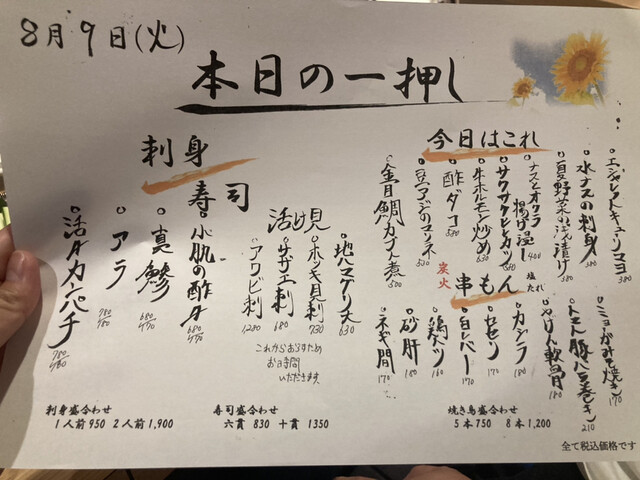 8月9日(火)
本日の一押し
今日はこれ
エシャレットキューリマヨ 380
水ナスの刺身 380
夏野菜の浅漬け 380
ナスとオクラ揚げ浸し 400
サクサクヒレカツ
牛ホルモン炒め 630
酢ダコ 530
豆アジのマリネ 530
金目鯛カブト煮 500
炭火
串もん
塩
たれ
ミョーガみそ焼き 170
トマト豚バラ巻き 210
やげん軟骨 180
カシラ 180
セセリ
白レバー
鶏ハツ 160
砂肝
ネギ間 170
刺身
寿司
活け貝
地ハマグリ大 630
ホッキ貝刺 730
サザエ刺 680
アワビ刺 1280
これからおろすため
お時間
いただきます
小肌の酢〆
真鯵 680/470
アラ 780/480
活〆カンパチ 780/480
刺身盛合わせ
1人前950 2人前1,900
寿司盛合わせ
六貫 830 十貫 1350
焼き鳥盛合わせ
5本750 8本1,200
全て税込価格です